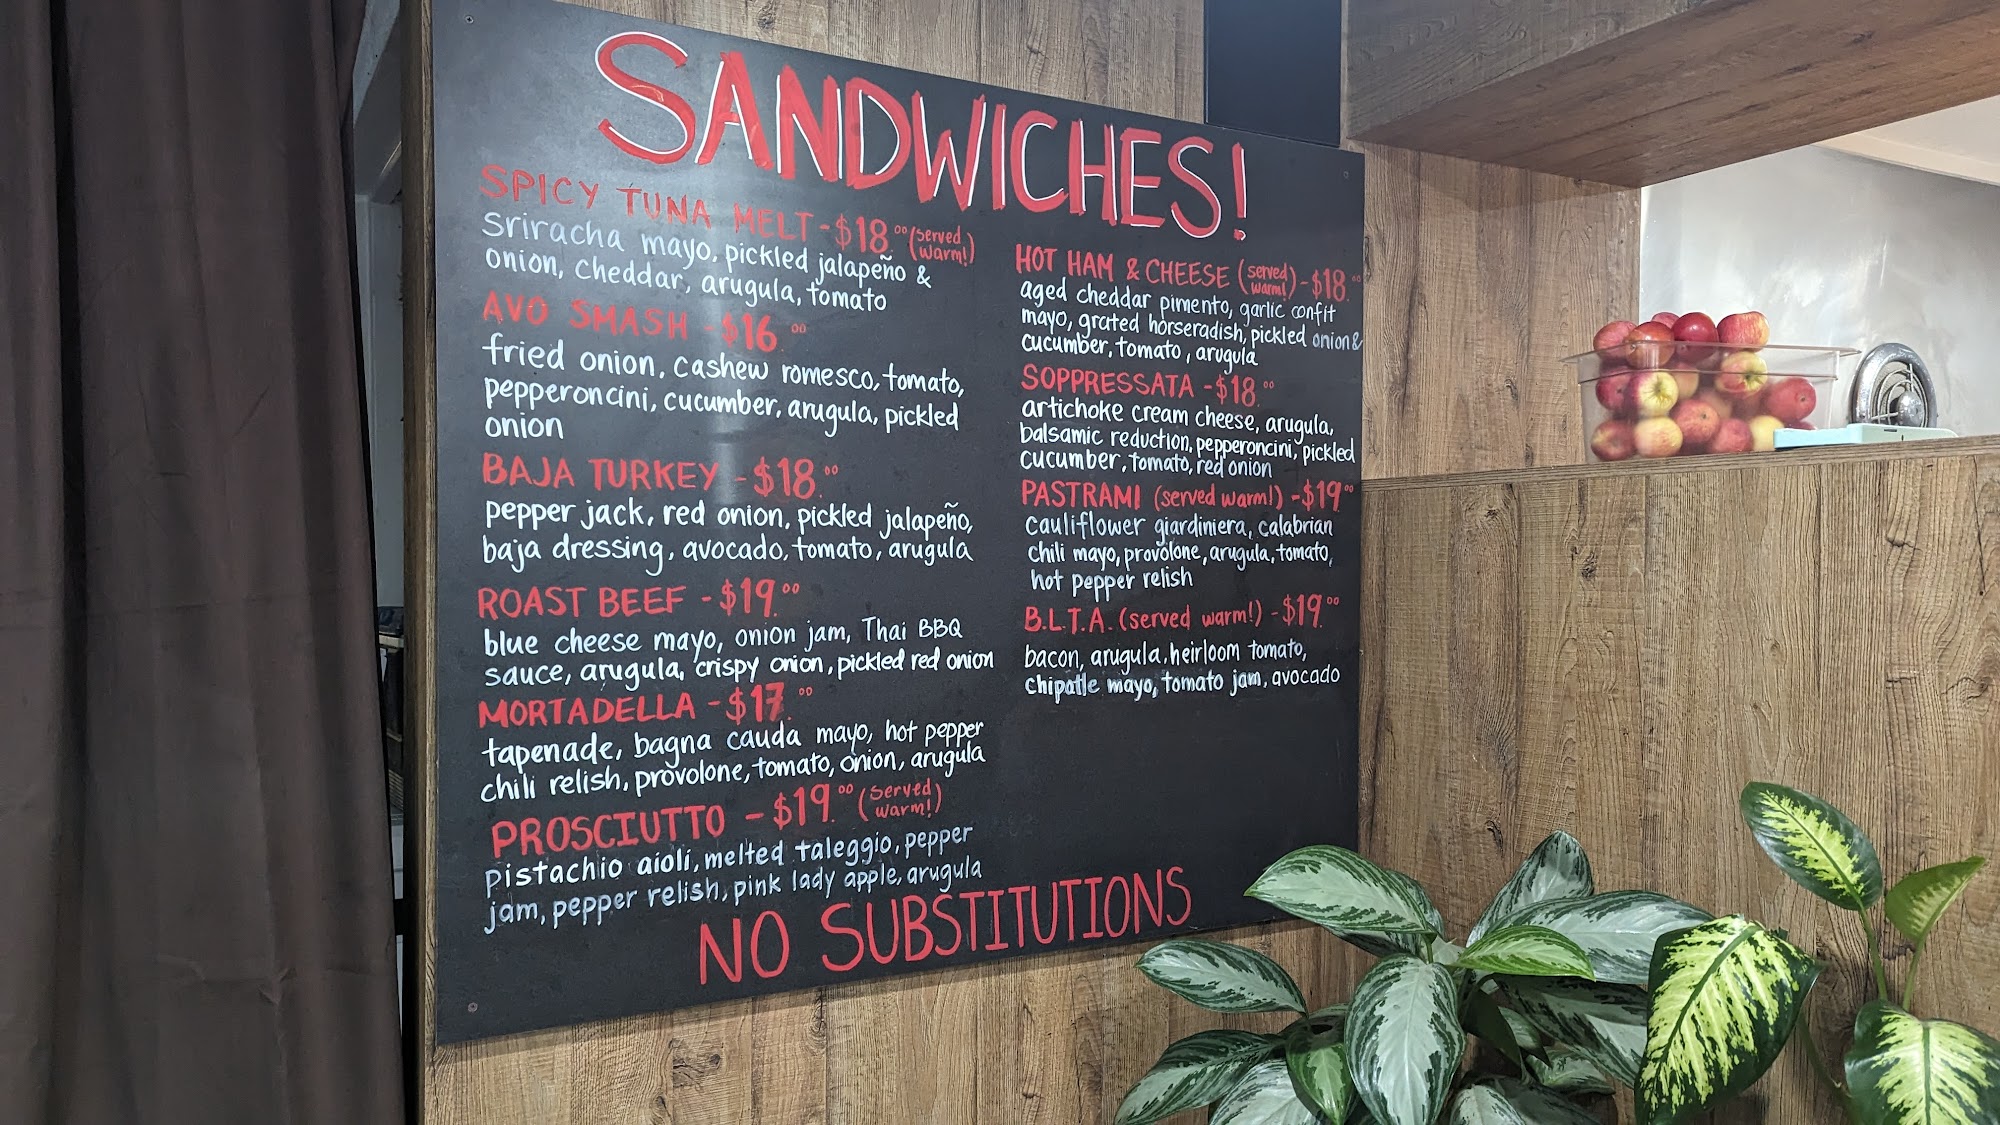 SANDWICHES!
SPICY TUNA MELT - $18.00 (served warm!)
Sriracha mayo, pickled jalapeño &
onion, cheddar, arugula, tomato
AVO SMASH - $16.00
fried onion, cashew romesco, tomato,
pepperoncini, cucumber, arugula, pickled
onion
BAJA TURKEY - $18.00
pepper jack, red onion, pickled jalapeño,
baja dressing, avocado, tomato, arugula
ROAST BEEF - $19.00
blue cheese mayo, onion jam, Thai BBQ
sauce, arugula, crispy onion, pickled red onion
MORTADELLA - $17.00
tapenade, bagna cauda mayo, hot pepper
chili relish, provolone, tomato, onion, arugula
PROSCIUTTO - $19.00 (served warm!)
pistachio aioli, melted taleggio, pepper
jam, pepper relish, pink lady apple, arugula
HOT HAM & CHEESE (served warm!) - $18.00
aged cheddar pimento, garlic confit
mayo, grated horseradish, pickled onion &
cucumber, tomato, arugula
SOPPRESSATA - $18.00
artichoke cream cheese, arugula,
balsamic reduction, pepperoncini, pickled
cucumber, tomato, red onion
PASTRAMI (served warm!) - $19.00
cauliflower giardiniera, calabrian
chili mayo, provolone, arugula, tomato,
hot pepper relish
B.L.T.A. (served warm!) - $19.00
bacon, arugula, heirloom tomato,
chipotle mayo, tomato jam, avocado
NO SUBSTITUTIONS